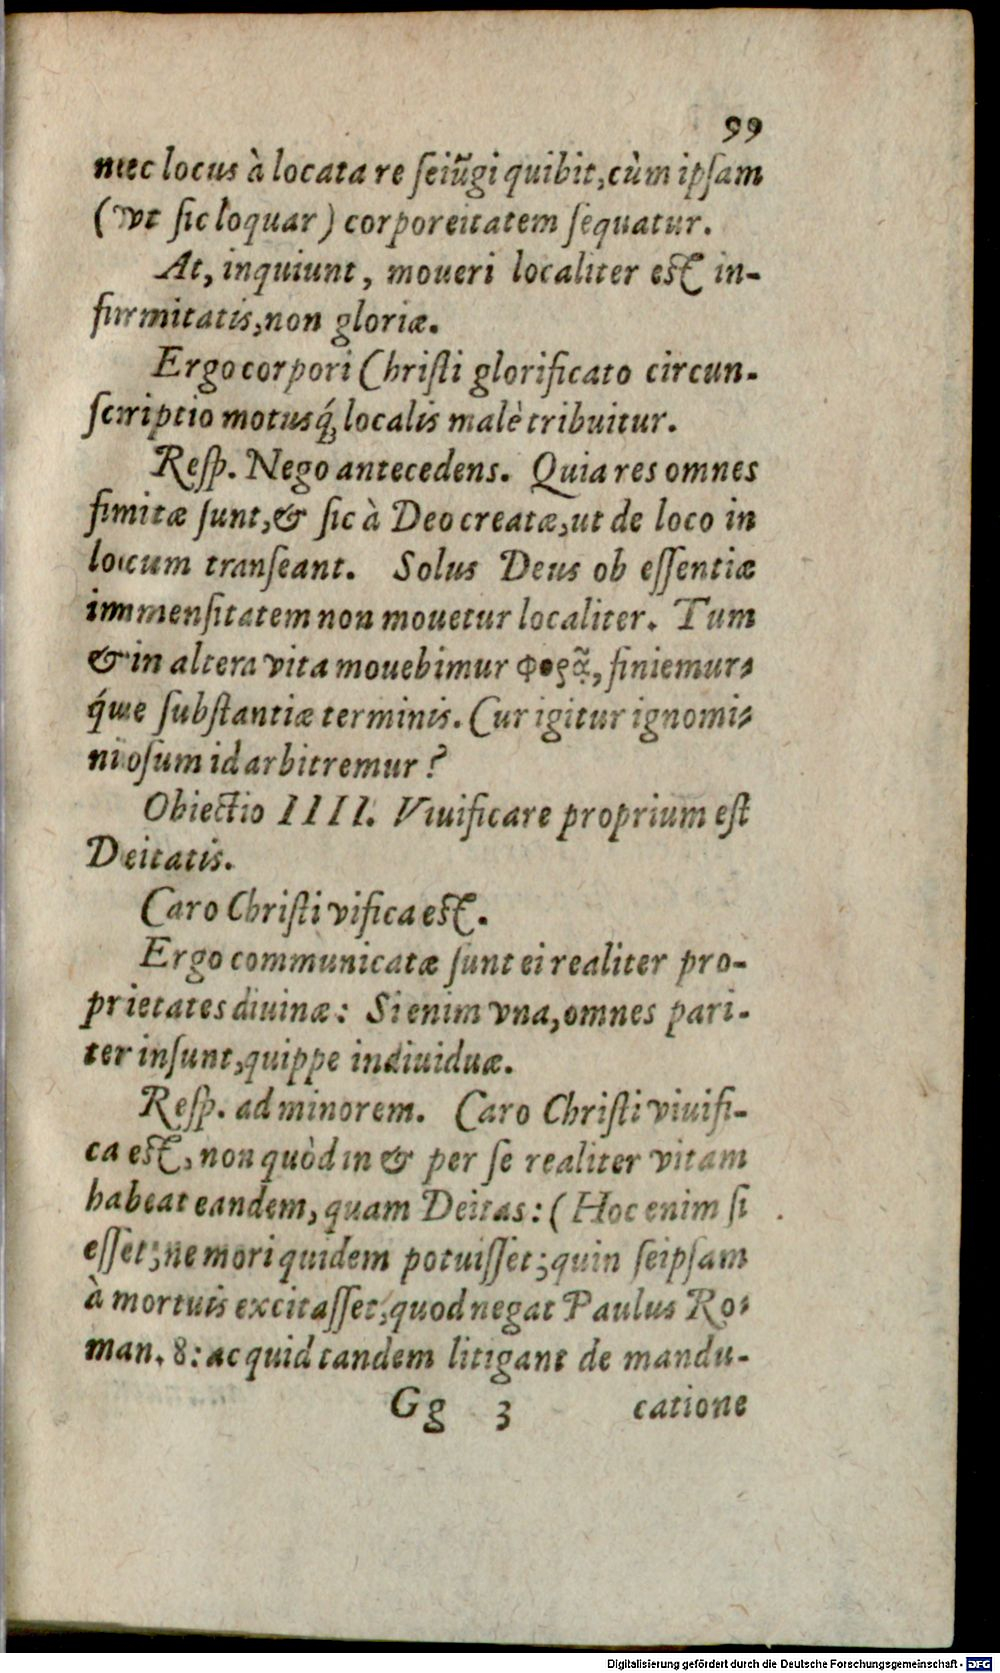 99
nec locus à locata re seiũgi quibit, cùm ipsam
(vt sic loquar) corporeitatem sequatur.
At, inquiunt, moueri localiter est in-
firmitatis, non gloriæ.
Ergo corpori Christi glorificato circun-
scriptio motusq́; localis malè tribuitur.
Resp. Nego antecedens. Quia res omnes
finitæ sunt, & sic à Deo creatæ, ut de loco in
locum transeant. Solus Deus ob essentiæ
immensitatem non mouetur localiter. Tum
& in altera vita mouebimur φορᾷ, finiemur-
q́ue substantiæ terminis. Cur igitur ignomi-
niosum id arbitremur?
Obiectio IIII. Viuificare proprium est
Deitatis.
Caro Christi vifica est.
Ergo communicatæ sunt ei realiter pro-
prietates diuinæ: Si enim vna, omnes pari-
ter insunt, quippe indiuiduæ.
Resp. ad minorem. Caro Christi viuifi-
ca est, non quòd in & per se realiter vitam
habeat eandem, quam Deitas: (Hoc enim si
esset; ne mori quidem potuisset; quin seipsam
à mortuis excitasset, quod negat Paulus Ro-
man. 8: ac quid tandem litigant de mandu-
Gg 3 catione
Digitalisierung gefördert durch die Deutsche Forschungsgemeinschaft - DFG